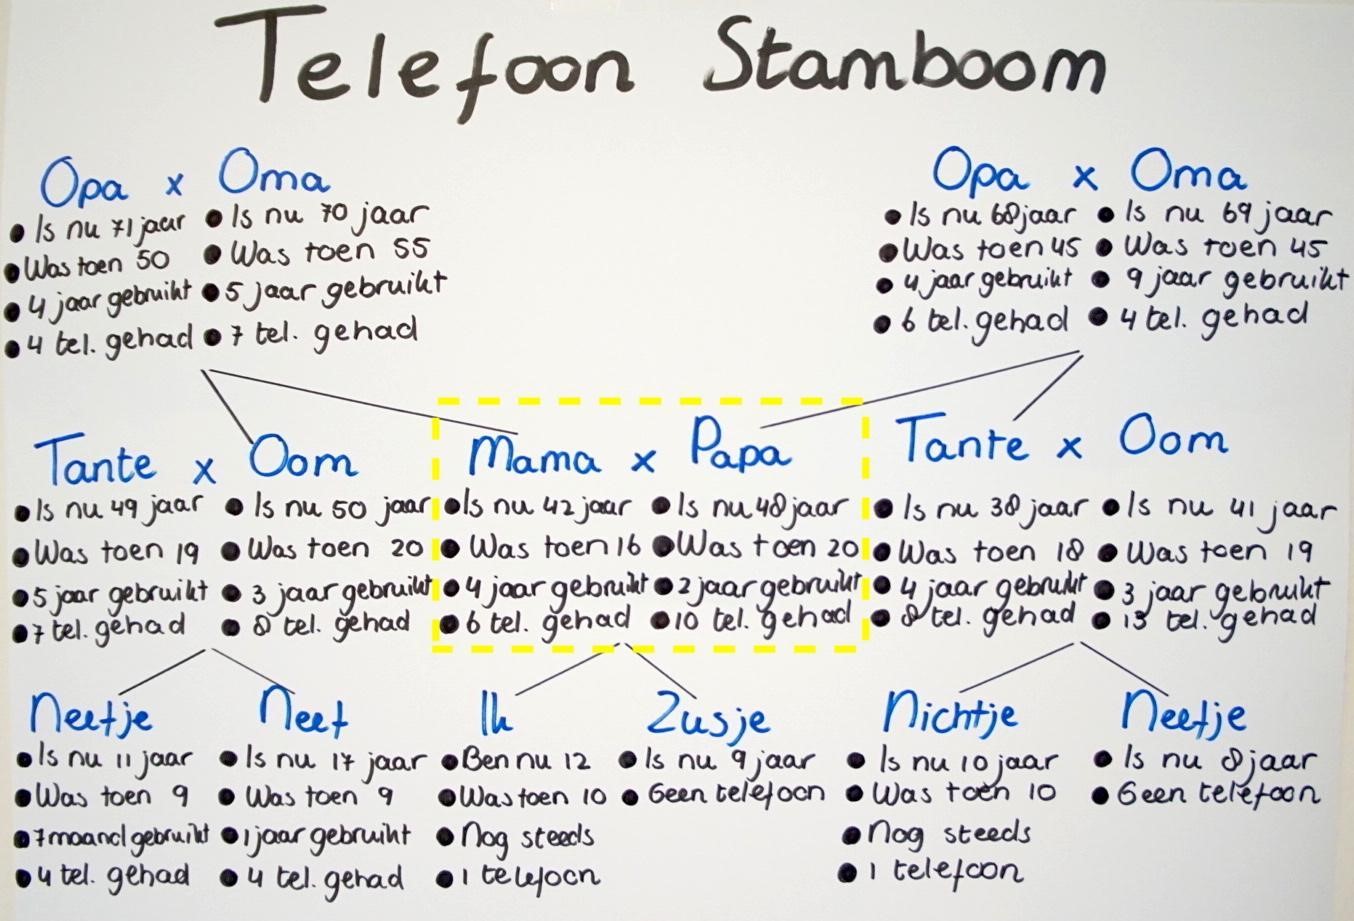 Telefoon Stamboom
Opa x Oma
• Is nu 71 jaar
• Was toen 50
• 4 jaar gebruikt
• 4 tel. gehad
• Is nu 70 jaar
• Was toen 55
• 5 jaar gebruikt
• 7 tel. gehad
Opa x Oma
• Is nu 68 jaar
• Was toen 45
• 4 jaar gebruikt
• 6 tel. gehad
• Is nu 69 jaar
• Was toen 45
• 9 jaar gebruikt
• 4 tel. gehad
Tante x Oom
• Is nu 49 jaar
• Was toen 19
• 5 jaar gebruikt
• 7 tel. gehad
• Is nu 50 jaar
• Was toen 20
• 3 jaar gebruikt
• 8 tel. gehad
Mama x Papa
• Is nu 42 jaar
• Was toen 16
• 4 jaar gebruikt
• 6 tel. gehad
• Is nu 48 jaar
• Was toen 20
• 2 jaar gebruikt
• 10 tel. gehad
Tante x Oom
• Is nu 38 jaar
• Was toen 18
• 4 jaar gebruikt
• 8 tel. gehad
• Is nu 41 jaar
• Was toen 19
• 3 jaar gebruikt
• 13 tel. gehad
Neefje
• Is nu 11 jaar
• Was toen 9
• 7 maand gebruikt
• 4 tel. gehad
Neef
• Is nu 17 jaar
• Was toen 9
• 1 jaar gebruikt
• 4 tel. gehad
Ik
• Ben nu 12
• Was toen 10
• Nog steeds
• 1 telefoon
Zusje
• Is nu 9 jaar
• Geen telefoon
Nichtje
• Is nu 10 jaar
• Was toen 10
• Nog steeds
• 1 telefoon
Neefje
• Is nu 8 jaar
• Geen telefoon